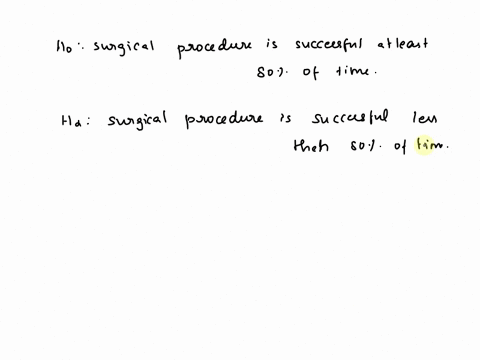 H₀: surgical procedure is successful atleast
80% of time.
Hₐ: surgical procedure is successful less
than 80% of time.